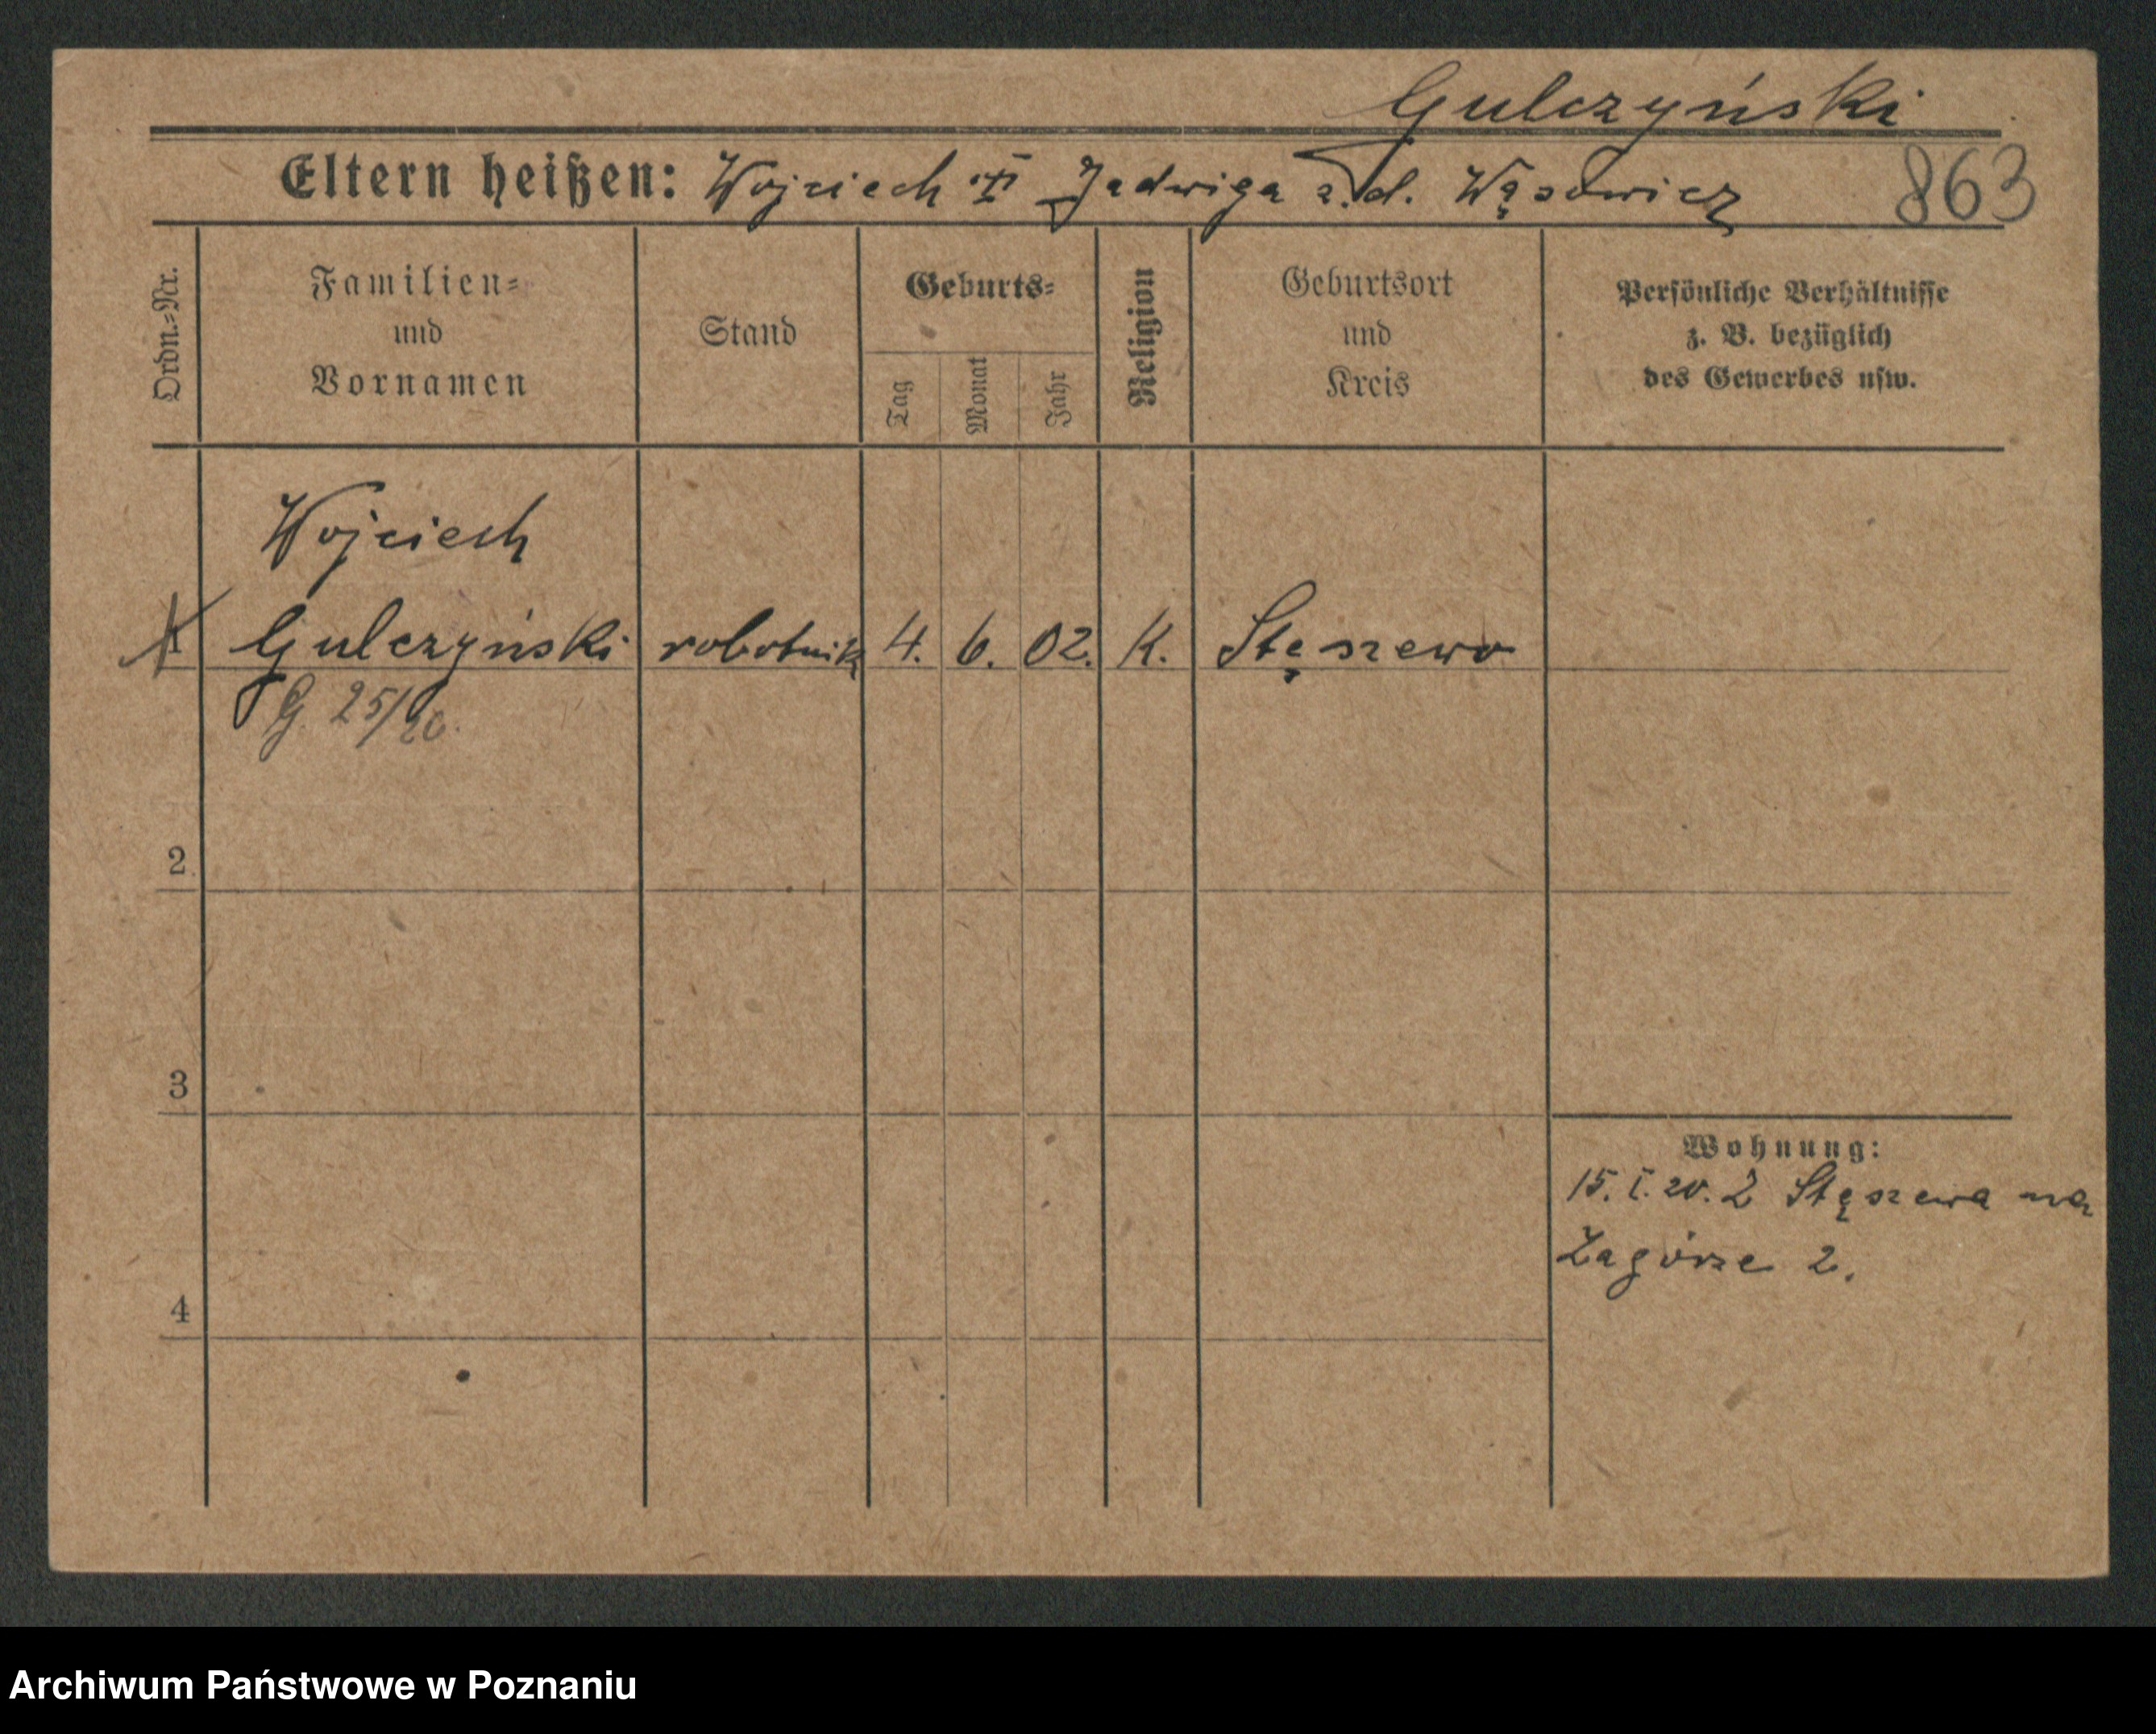 Gulczyński
Eltern heißen: Wojciech i Jadwiga z. d. Wąsowicz 863
Ordn.=Nr.
Familien=
und
Vornamen
Stand
Geburts=
Tag
Monat
Jahr
Religion
Geburtsort
und
Kreis
Persönliche Verhältnisse
z. B. bezüglich
des Gewerbes usw.
Wojciech
1 Gulczyński robotnik 4. 6. 02. K. Stęszewo
G. 25/20.
2
3
Wohnung:
15. I. 20. Z Stęszewa na
Zagórze 2.
4
Archiwum Państwowe w Poznaniu